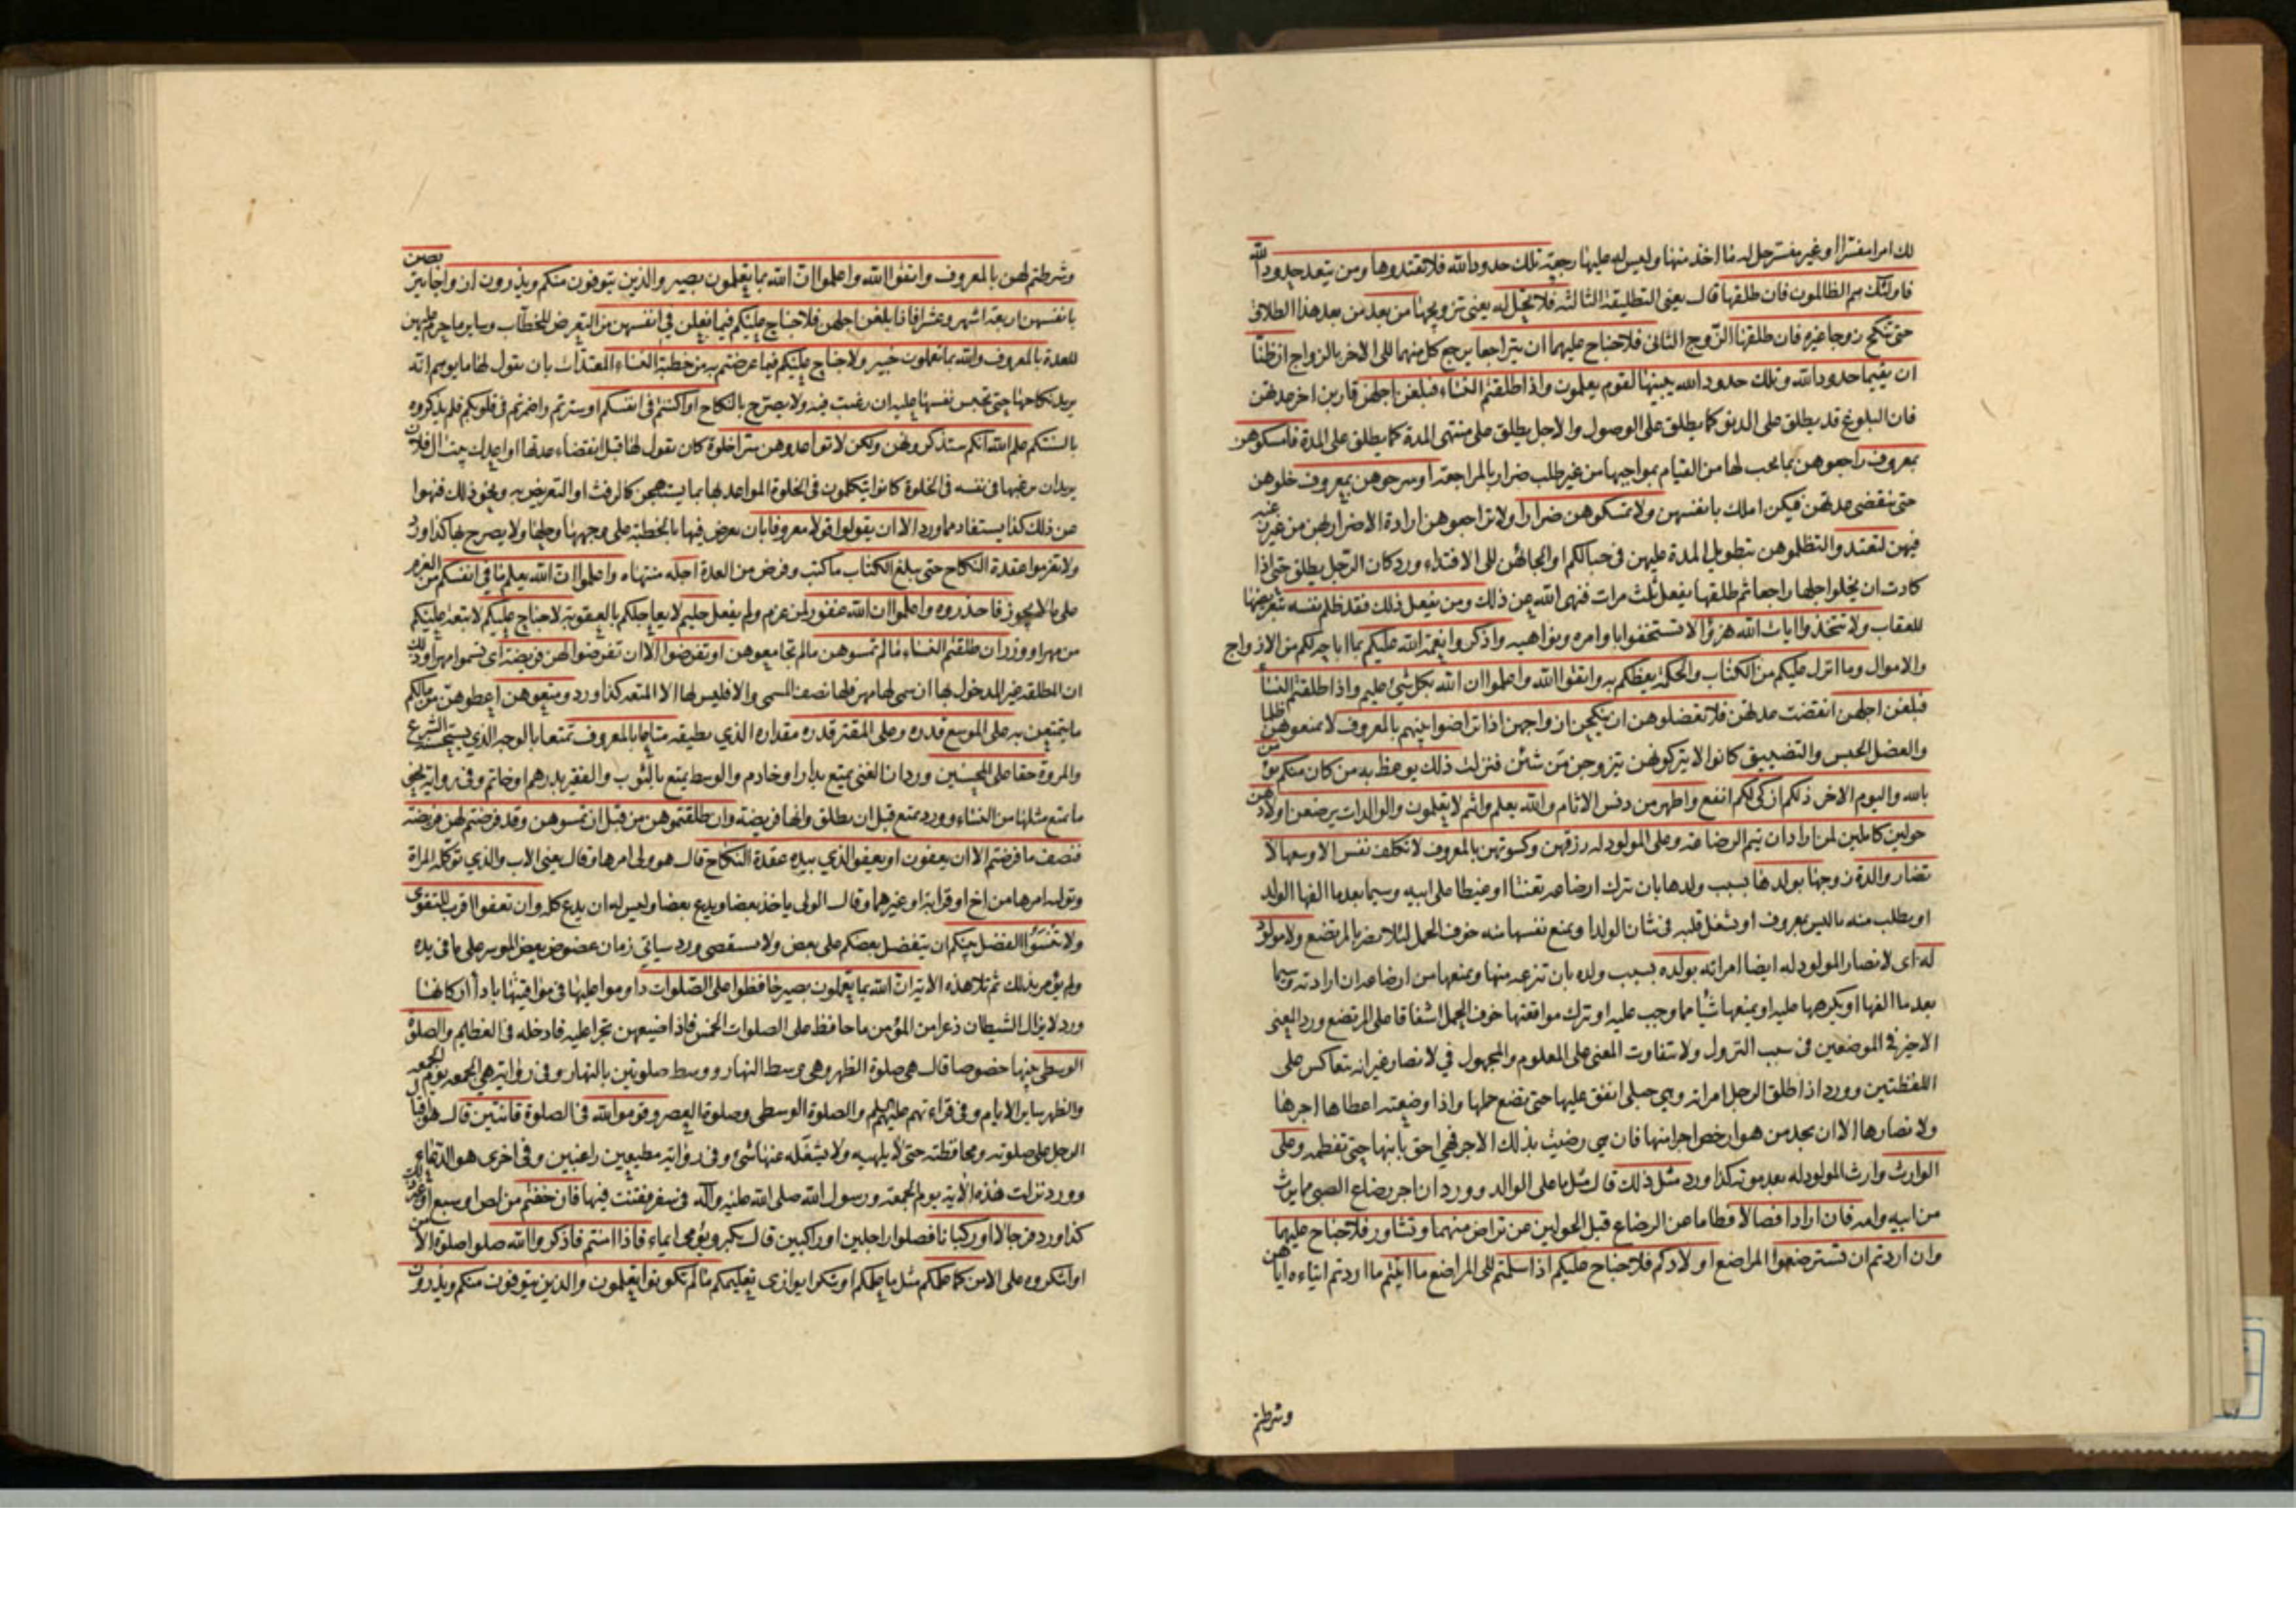 لك امرا مفسرا او غير مفسر حل له ما اخذ منها وليس له عليها رجعة تلك حدود الله فلا تعتدوها ومن يتعد حدود الله
فاولئك هم الظالمون فان طلقها قال يعني التطليقة الثالثة فلا تحل له يعني تزويجها من بعد من بعد هذا الطلاق
حتى تنكح زوجا غيره فان طلقها الزوج الثاني فلا جناح عليهما ان يتراجعا يرجع كل منهما الى الاخر بالزواج ان ظنا
ان يقيما حدود الله وتلك حدود الله يبينها لقوم يعلمون واذا طلقتم النساء فبلغن اجلهن قاربن اخر عدتهن
فان البلوغ قد يطلق على الدنو كما يطلق على الوصول والاجل يطلق على منتهى المدة كما يطلق على المدة فامسكوهن
بمعروف راجعوهن بما يجب لها من القيام بمواجبها من غير طلب ضرار بالمراجعة او سرحوهن بمعروف خلوهن
حتى تنقضي عدتهن فيكن املك بانفسهن ولا تمسكوهن ضرارا ولا تراجعوهن ارادة الاضرار بهن من غير رغبة
فيهن لتعتدوا لتظلموهن بتطويل المدة عليهن في حبالكم او الجائهن الى الافتداء ورد كان الرجل يطلق حتى اذا
كادت ان يخلو اجلها راجعها ثم طلقها يفعل ثلث مرات فنهى الله عن ذلك ومن يفعل ذلك فقد ظلم نفسه بتعريضها
للعقاب ولا تتخذوا ايات الله هزوا لا تستخفوا باوامره ونواهيه واذكروا نعمة الله عليكم بما اباحه لكم من الازواج
والاموال وما انزل عليكم من الكتاب والحكمة يعظكم به واتقوا الله واعلموا ان الله بكل شيء عليم واذا طلقتم النساء
فبلغن اجلهن انقضت عدتهن فلا تعضلوهن ان ينكحن ازواجهن اذا تراضوا بينهم بالمعروف لا تمنعوهن ظلما
والعضل الحبس والتضييق كانوا لا يتركونهن يتزوجن من شئن فنزلت ذلك يوعظ به من كان منكم يؤمن
بالله واليوم الاخر ذلكم ازكى لكم انفع واطهر من دنس الاثام والله يعلم وانتم لا تعلمون والوالدات يرضعن اولادهن
حولين كاملين لمن اراد ان يتم الرضاعة وعلى المولود له رزقهن وكسوتهن بالمعروف لا تكلف نفس الا وسعها لا
تضار والدة زوجها بولدها بسبب ولدها بان تترك ارضاعه تعنتا او غيظا على ابيه وسيما بعد ما الفها الولد
او يطلب منه ما ليس بمعروف او تشغل قلبه في شان الولد او تمنع نفسها منه خوف الحمل لئلا يضر بالمرتضع ولا مولود
له اي لا تضار المولود له ايضا امراته بولده بسبب ولده بان تنزعه منها ويمنعها من ارضاعه ان ارادته وسيما
بعد ما الفها او يكرهها عليه او يمنعها شيئا مما وجب عليه او ترك مواقعتها خوف الحمل اشفاقا على المرتضع ورد المعنى
الاخير في الموضعين في سبب النزول ولا تتفاوت المعنى على المعلوم والمجهول في لا تضار غير انه يتعاكس على
اللفظتين وورد اذا طلق الرجل امراته وهي حبلى انفق عليها حتى تضع حملها واذا وضعته اعطاها اجرها
ولا تضارها الا ان يجد من هو ارخص اجرا منها فان هي رضيت بذلك الاجر فهي احق بابنها حتى تفطمه وعلى
الوارث وارث المولود له بعد موته كذا ورد مثل ذلك قال مثل ما على الوالد وورد ان اجر رضاع الصبي مما يرث
من ابيه وامه فان ارادا فصالا فطاما من الرضاع قبل الحولين عن تراض منهما وتشاور فلا جناح عليهما
وان اردتم ان تسترضعوا المراضع اولادكم فلا جناح عليكم اذا سلمتم الى المراضع ما اتيتم ما اردتم ايتاءه اياهن
وشرطتم
وشرطتم لهن بالمعروف واتقوا الله واعلموا ان الله بما تعملون بصير والذين يتوفون منكم ويذرون ازواجا يتربصن
بانفسهن اربعة اشهر وعشرا فاذا بلغن اجلهن فلا جناح عليكم فيما فعلن في انفسهن من التعرض للخطاب وساير ما حرم عليهن
للعدة بالمعروف والله بما تعملون خبير ولا جناح عليكم فيما عرضتم به من خطبة النساء المعتدات بان يقول لها ما يوهم انه
يريد نكاحها حتى تحبس نفسها عليه ان رغبت فيه ولا يصرح بالنكاح او اكننتم في انفسكم او سترتم واضمرتم في قلوبكم فلم يذكروه
بالسنتكم علم الله انكم ستذكرونهن ولكن لا تواعدوهن سرا خلوة كان يقول لها قبل انقضاء عدتها اواعدك بيت ال فلان
يريد ان يرغبها في نفسه في الخلوة كانوا يتكلمون في الخلوة المواعد لها بما يستهجن كالرفث او التعريض به ونحو ذلك فنهوا
عن ذلك كذا يستفاد مما ورد الا ان يقولوا قولا معروفا بان يعرض فيها بالخطبة على وجهها وحلها ولا يصرح بها كذا ورد
ولا تعزموا عقدة النكاح حتى يبلغ الكتاب ما كتب وفرض من العدة اجله منتهاه واعلموا ان الله يعلم ما في انفسكم من العزم
على ما لا يجوز فاحذروه واعلموا ان الله غفور لمن عزم ولم يفعل حليم لا يعاجلكم بالعقوبة لا جناح عليكم لا تبعة عليكم
من مهر او وزر ان طلقتم النساء ما لم تمسوهن ما لم تجامعوهن او تفرضوا الا ان تفرضوا لهن فريضة اي تسموا مهرا وذلك
ان المطلقة غير المدخول بها ان سمى لها مهر فلها نصف المسمى والا فليس لها الا المتعة كذا ورد ومتعوهن اعطوهن من مالكم
ما يتمتعن به على الموسع قدره وعلى المقتر قدره مقداره الذي يطيقه متاعا بالمعروف تمتعا بالوجه الذي يستحسنه الشرع
والمروة حقا على المحسنين ورد ان الغني يمتع بدار او خادم والوسط يمتع بالثوب والفقير بدرهم او خاتم وفي رواية نحو
ما يمتع مثلها من النساء وورد يمتع قبل ان يطلق وانها فريضة وان طلقتموهن من قبل ان تمسوهن وقد فرضتم لهن فريضة
فنصف ما فرضتم الا ان يعفون او يعفو الذي بيده عقدة النكاح قال هو ولي امرها وقال يعني الاب والذي توكله المراة
وتوليه امرها من اخ او قرابة او غيرهما وقال الولي ياخذ بعضا ويدع بعضا وليس له ان يدع كله وان تعفوا اقرب للتقوى
ولا تنسوا الفضل بينكم ان يتفضل بعضكم على بعض ولا يستقصي ورد سياتي زمان عضوض يعض الموسر على ما في يده
ولم يؤمر بذلك ثم تلا هذه الاية ان الله بما تعملون بصير حافظوا على الصلوات داوموا عليها في مواقيتها باداء اركانها
ورد لا يزال الشيطان ذعرا من المؤمن ما حافظ على الصلوات الخمس فاذا ضيعهن تجرا عليه فادخله في العظايم والصلوة
الوسطى بينها خصوصا قال هي صلوة الظهر وهي وسط النهار ووسط صلوتين بالنهار وفي رواية هي الجمعة يوم الجمعة
والظهر ساير الايام وفي قراءتهم عليهم السلم والصلوة الوسطى وصلوة العصر وقوموا لله في الصلوة قانتين قال هو اقبال
الرجل على صلوته ومحافظته حتى لا يلهيه ولا يشغله عنها شيء وفي رواية مطيعين راغبين وفي اخرى هو الدعاء
وورد نزلت هذه الاية يوم الجمعة ورسول الله صلى الله عليه وآله في سفر فقنت فيها فان خفتم من لص او سبع او غير ذلك
كذا ورد فرجالا او ركبانا فصلوا راجلين او راكبين قال يكبر ويؤمي ايماء فاذا امنتم فاذكروا الله صلوا صلوة الامن
او اشكروه على الامن كما علمكم مثل ما علمكم او شكرا يوازي تعليمكم ما لم تكونوا تعلمون والذين يتوفون منكم ويذرون